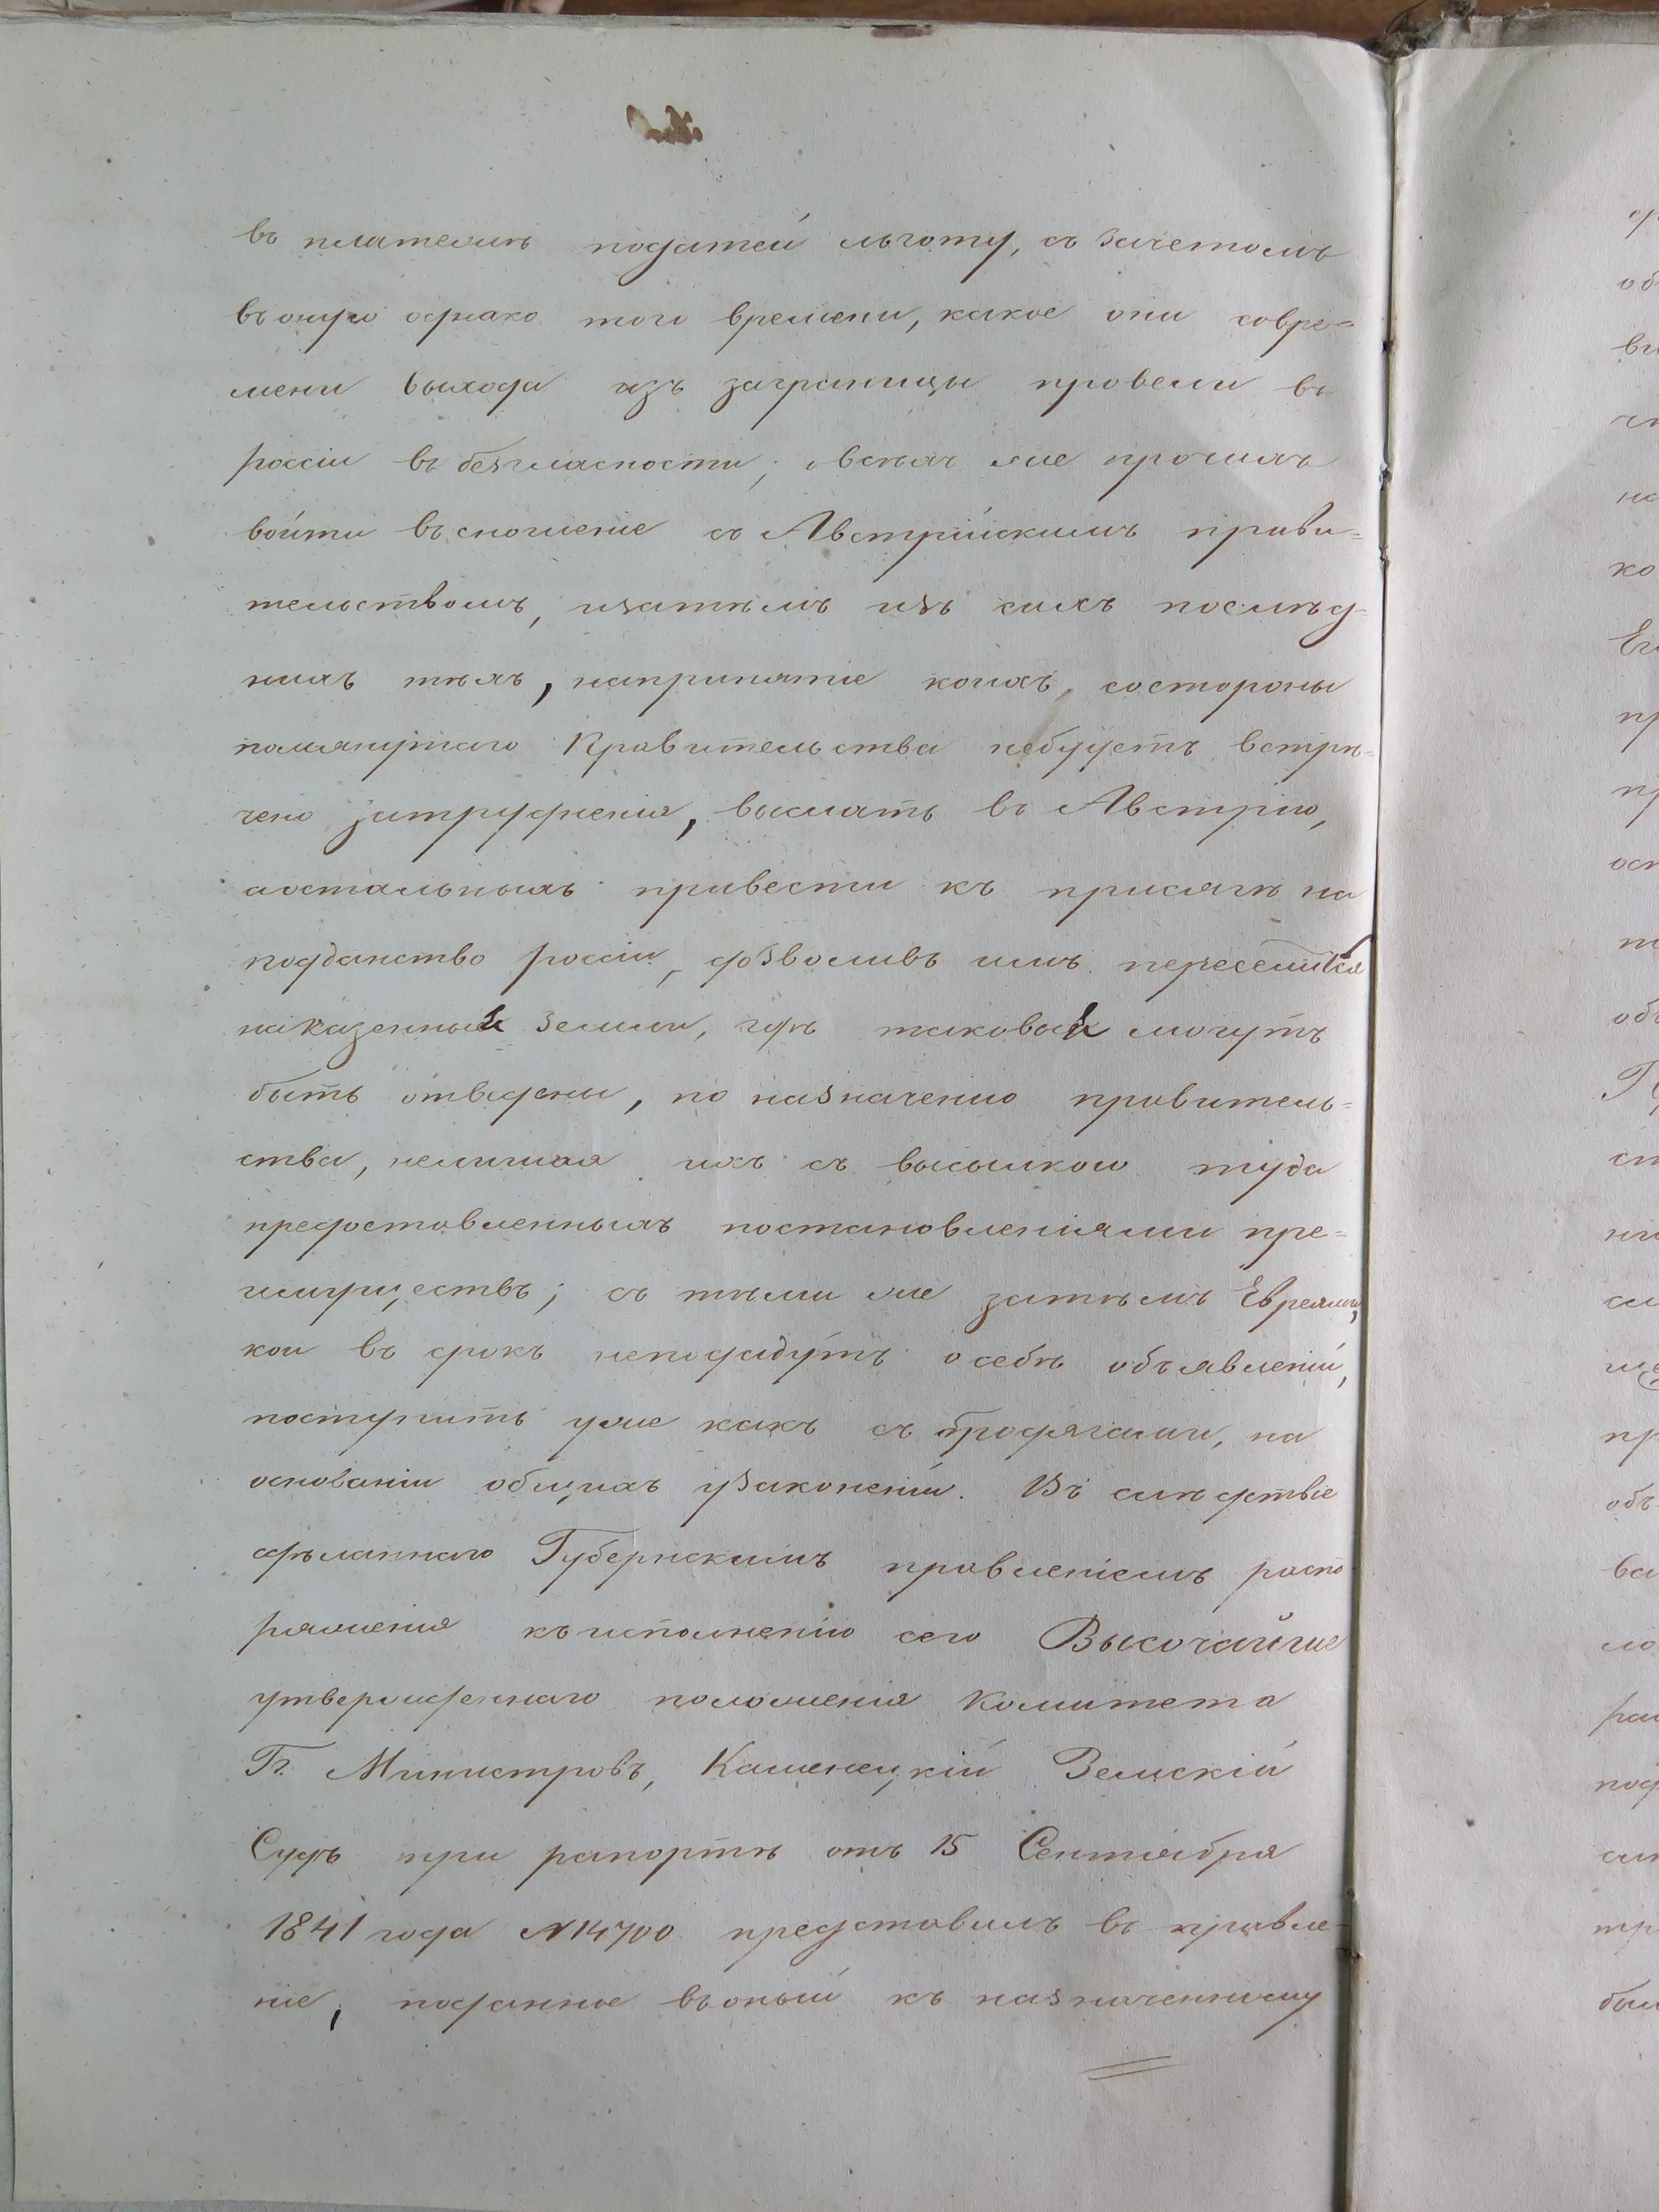 въ платежѣ податей льготу, съ зачетомъ
въ оную однако того времени, какое они совре=
мени выхода изъ заграницы провели въ
россіи въ безгласности; овсѣхъ же прочихъ
войти въ сношеніе съ Австрійскимъ прави=
тельствомъ, изатѣмъ изъ сихъ послѣд-
нихъ тѣхъ, напринятіе коихъ, состороны
помянутаго Правительства небудетъ встрѣ=
чено затрудненія, выслать въ Австрію,
аостальныхъ привести къ присягѣ на
подданство россіи, дозволивъ имъ переселится
наказенныя земли, гдѣ таковыя могутъ
быть отведены, по назначенію правитель=
ства, нелишая ихъ съ высылкою туда
предоставленныхъ постановленіями пре=
имуществъ; съ тѣми же затѣмъ Евреями,
кои въ срокъ неподадутъ осебѣ объявленій,
поступить уже какъ съ бродягами, на
основаніи общихъ узаконеній. Въ слѣдствіе
сдѣланнаго Губернскимъ правленіемъ распо
ряженія къ исполненію сего Высочайше
утвержденнаго положенія Комитета
Гг. Министровъ, Каменецкій Земскій
Судъ при рапортѣ отъ 15 Сентября
1841 года №14700 представилъ въ правле-
ніе, поданное въ оный къ назначенному